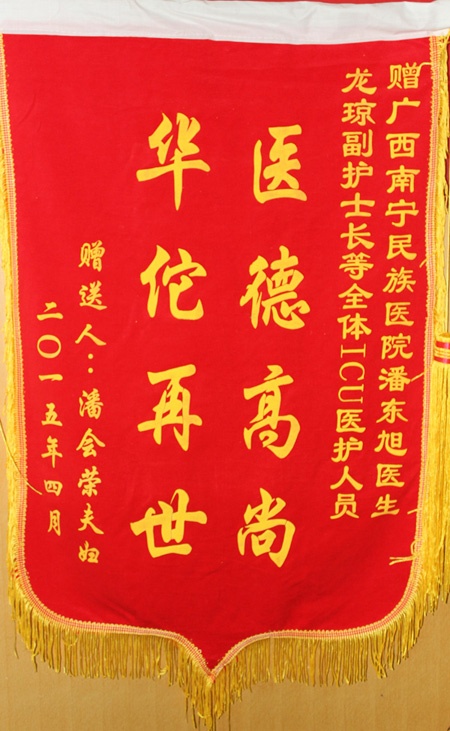 赠广西南宁民族医院潘东旭医生
龙琼副护士长等全体ICU医护人员
医德高尚
华佗再世
赠送人：潘会荣夫妇
二〇一五年四月